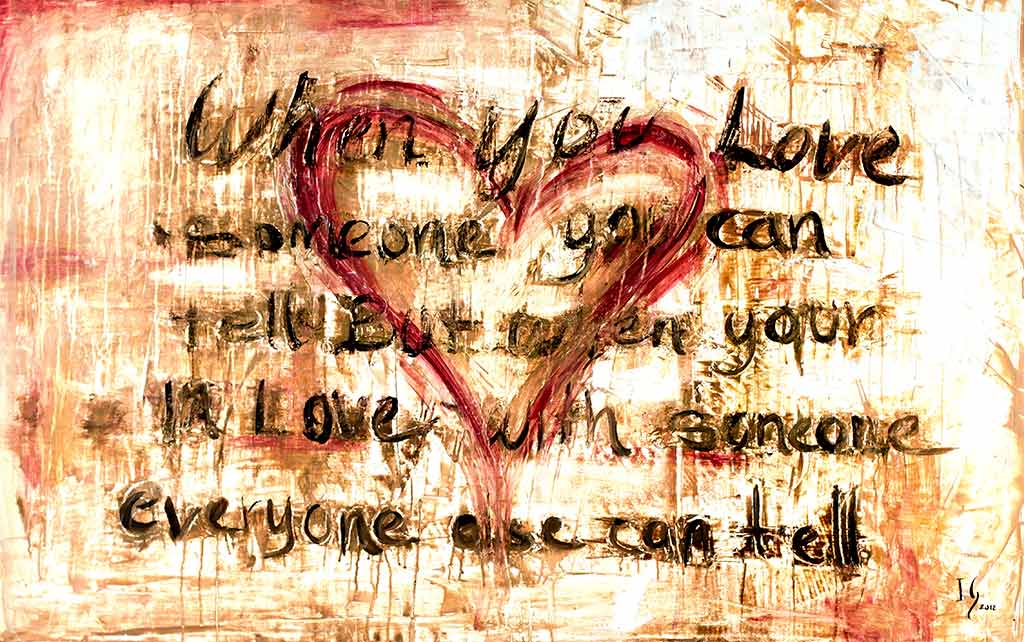 When you Love
someone you can
tell But when your
In Love with someone
everyone else can tell
IS 2012